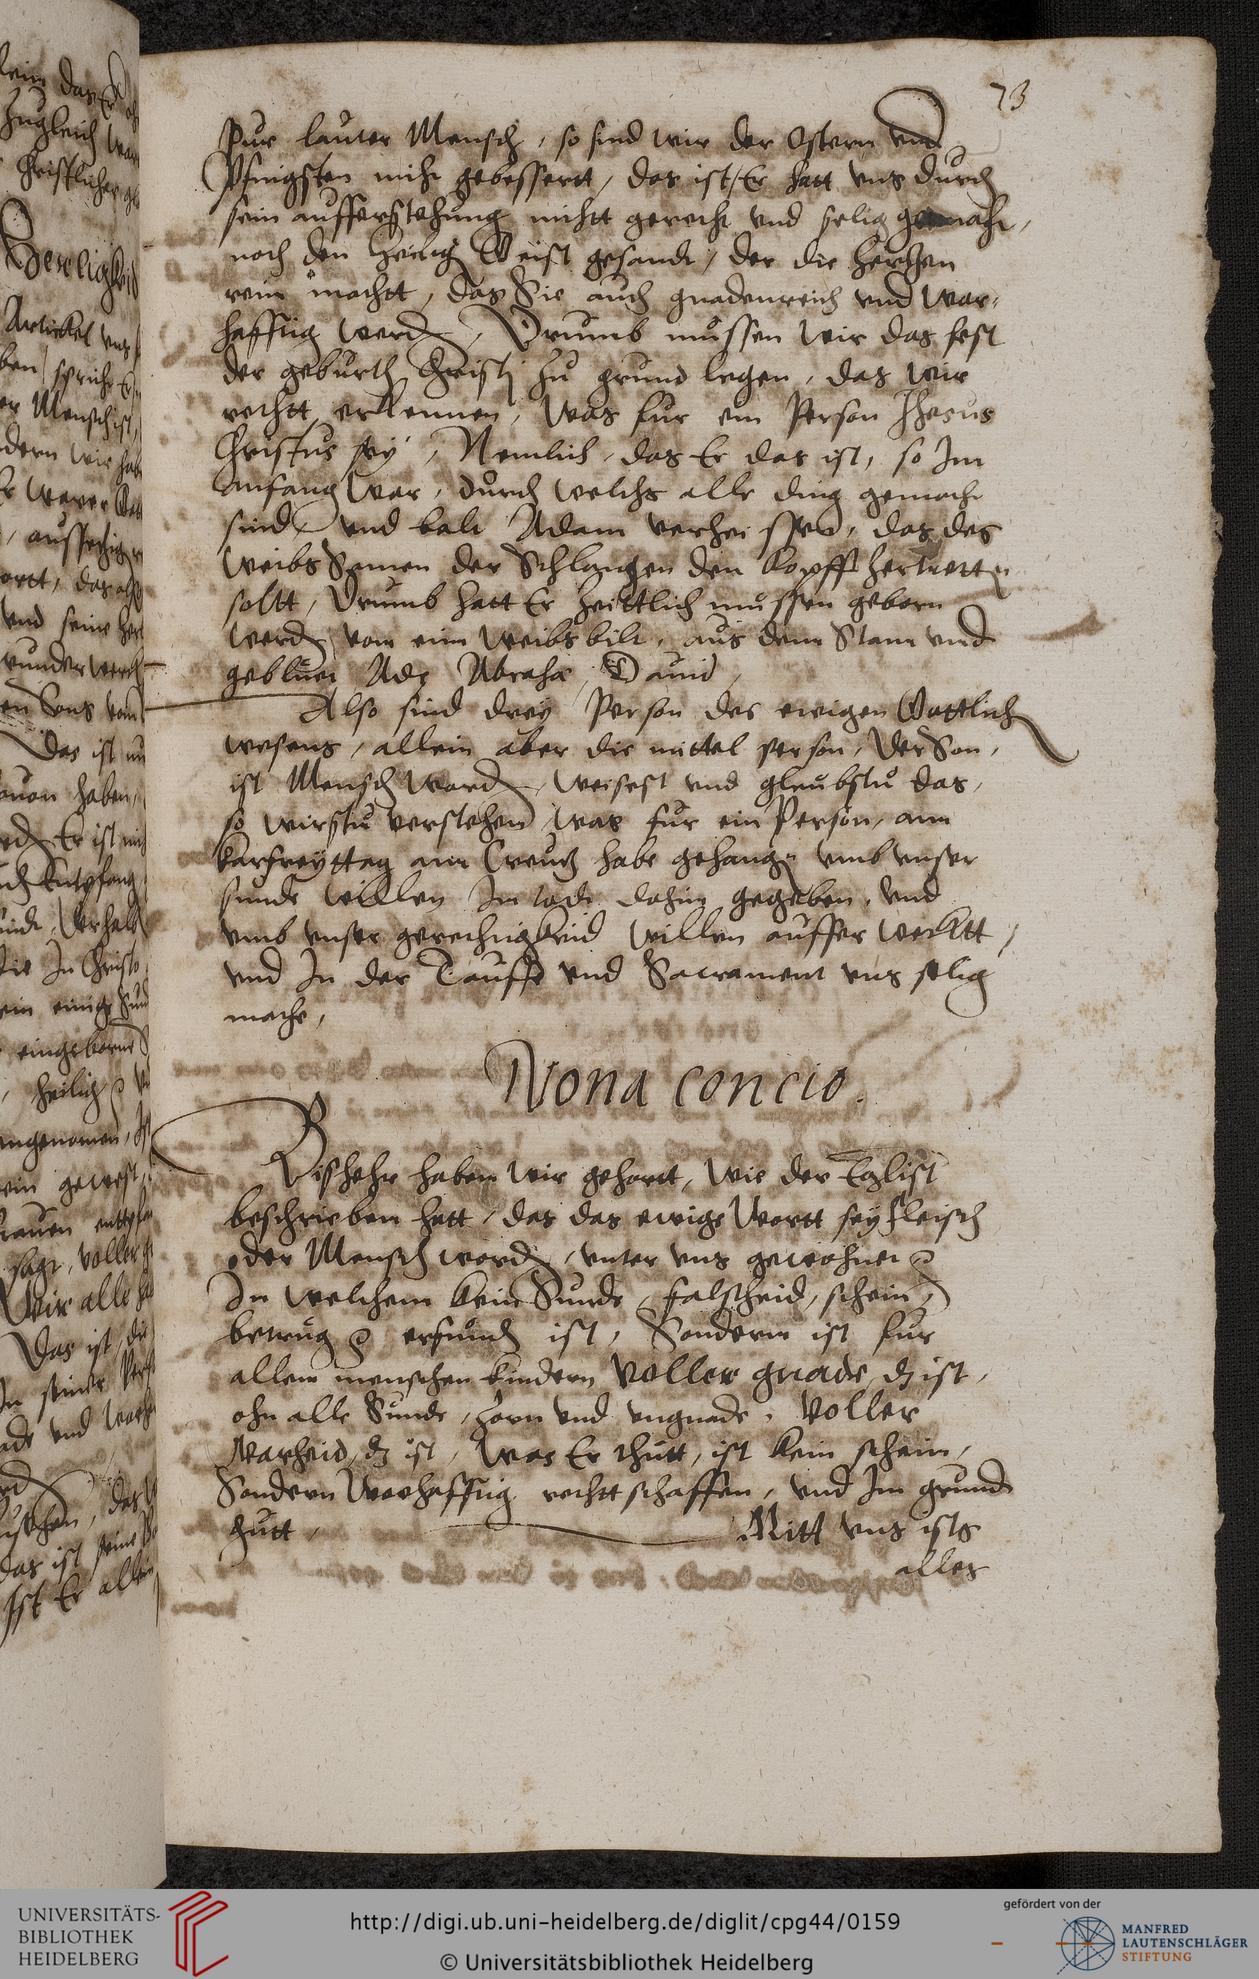 73
Pur lauter Mensch, so sind wir der Ostern vnd
Pfingsten nicht gebessertt, das ist, Er hatt vns durch
sein aufferstehung nichtt gerecht vnd selig gemacht,
noch den heilig Geist gesandt, der die hertzen
rein machtt, das Sie auch gnadenreich vnd war-
hafftig werd, Drumb mussen wir das fest
der geburth Christi zu grund legen, das wir
rechtt erkennen, was fur ein Person Jhesus
Christus sey, Nemlich, das Er das ist, so Im
anfang war, durch welchs alle ding gemacht
sind, vnd balt Adam verheissen, das des
weibs Samen der Schlangen den kopff zertretten
soltt, Drumb hatt Er zeittlich mussen geborn
werd, vom eim weibs bilt, aus dem Stam vnd
gebluet Ade Abrahæ, Dauid,
Also sind drey Person des ewigen Gottlich
wesens, allein aber die mittel person, der Son,
ist Mensch ward, weisest vnd gleubstu das,
so wirstu verstehen, was fur ein Person, am
karfreyttag am Creutz habe gehangen vmb vnser
sunde willen In tod dahin gegeben, vnd
vmb vnser gerechtigkeid willen aufferwecktt,
vnd In der Tauffe vnd Sacrament vns selig
mache,
Nona concio.
Bishehr haben wir gehortt, wie der Eglist
beschrieben hatt, das das ewige Wortt sey fleisch
oder Mensch word, vnter vns gewohnet
In welchem kein Sunde, falscheid, schein,
betrug erfund ist, Sondern ist fur
allem menschen kindern voller gnade, dz ist,
ohn alle Sunde, zorn vnd vngnade, voller
Warheid, dz ist, Was Er thutt, ist kein schein,
Sondern Warhafftig rechttschaffen, vnd Im grund
gutt, Mitt vns ists
alles
UNIVERSITÄTS-
BIBLIOTHEK
HEIDELBERG
http://digi.ub.uni-heidelberg.de/diglit/cpg44/0159
© Universitätsbibliothek Heidelberg
gefördert von der
MANFRED
LAUTENSCHLÄGER
STIFTUNG